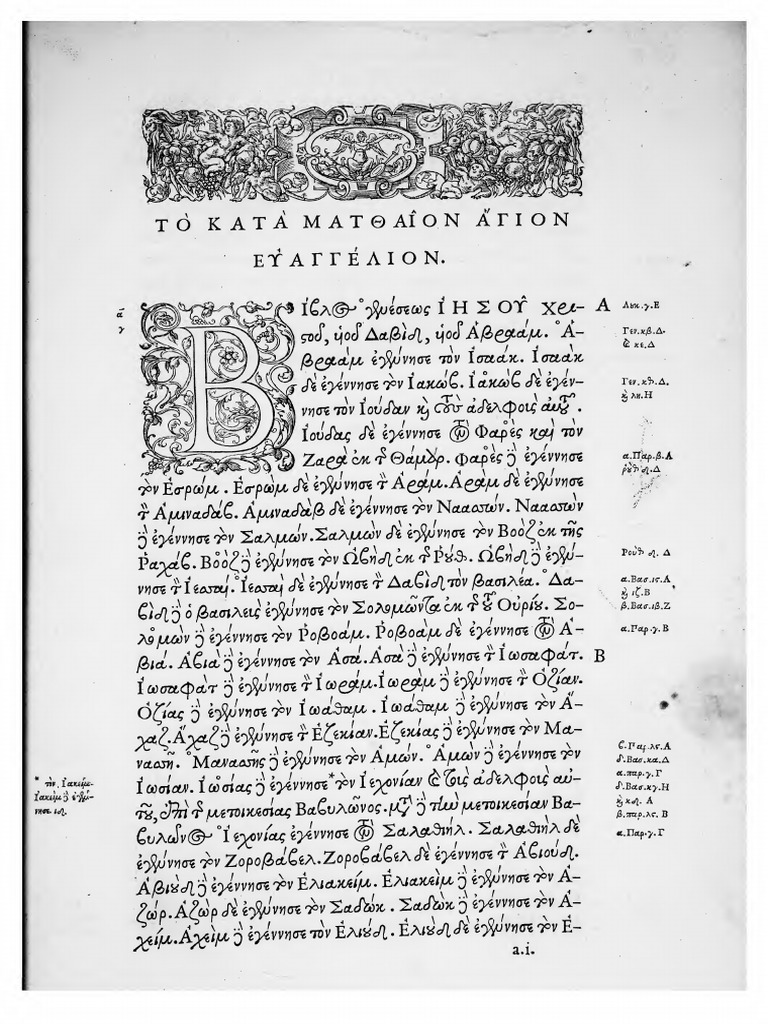 ΤΟ ΚΑΤΑ ΜΑΤΘΑΙ͂ΟΝ ἍΓΙΟΝ
ΕΥ̓ΑΓΓΈΛΙΟΝ.
Βίβλος γενέσεως ἸΗΣΟΥ͂ Χρι- Α Λυκ.γ.Ε
στοῦ, υἱοῦ Δαβὶδ, υἱοῦ Ἀβραάμ. Ἀ- Γεν.κβ.Δ.
βραὰμ ἐγέννησε τὸν Ἰσαάκ. Ἰσαὰκ & κε.Δ
δὲ ἐγέννησε τὸν Ἰακώβ. Ἰακὼβ δὲ ἐγέν- Γεν.κθ.Δ.
νησε τὸν Ἰούδαν καὶ τοὺς ἀδελφοὺς αὐτοῦ. καὶ λη.Η
Ἰούδας δὲ ἐγέννησε τὸν Φαρὲς καὶ τὸν
Ζαρὰ ἐκ τῆς Θάμαρ. Φαρὲς δὲ ἐγέννησε α.Παρ.β.Α
τὸν Ἐσρώμ. Ἐσρὼμ δὲ ἐγέννησε τὸν Ἀράμ. Ἀρὰμ δὲ ἐγέννησε
τὸν Ἀμιναδάβ. Ἀμιναδὰβ δὲ ἐγέννησε τὸν Ναασσών. Ναασσὼν
δὲ ἐγέννησε τὸν Σαλμών. Σαλμὼν δὲ ἐγέννησε τὸν Βοὸζ ἐκ τῆς
Ῥαχάβ. Βοὸζ δὲ ἐγέννησε τὸν Ὠβὴδ ἐκ τῆς Ῥούθ. Ὠβὴδ δὲ ἐγέν- Ρουθ δ. Δ
νησε τὸν Ἰεσσαί. Ἰεσσαὶ δὲ ἐγέννησε τὸν Δαβὶδ τὸν βασιλέα. Δα- α.Βασ.ις.Α
καὶ ιζ.Β
βὶδ δὲ ὁ βασιλεὺς ἐγέννησε τὸν Σολομῶντα ἐκ τῆς τοῦ Οὐρίου. Σο- β.Βασ.ιβ.Ζ
λομὼν δὲ ἐγέννησε τὸν Ῥοβοάμ. Ῥοβοὰμ δὲ ἐγέννησε τὸν Ἀ- α.Παρ.γ.Β
βιά. Ἀβιὰ δὲ ἐγέννησε τὸν Ἀσά. Ἀσὰ δὲ ἐγέννησε τὸν Ἰωσαφάτ. Β
Ἰωσαφὰτ δὲ ἐγέννησε τὸν Ἰωράμ. Ἰωρὰμ δὲ ἐγέννησε τὸν Ὀζίαν.
Ὀζίας δὲ ἐγέννησε τὸν Ἰωάθαμ. Ἰωάθαμ δὲ ἐγέννησε τὸν Ἄ-
χαζ. Ἄχαζ δὲ ἐγέννησε τὸν Ἐζεκίαν. Ἐζεκίας δὲ ἐγέννησε τὸν Μα-
νασσῆ. Μανασσῆς δὲ ἐγέννησε τὸν Ἀμών. Ἀμὼν δὲ ἐγέννησε τὸν
Ἰωσίαν. Ἰωσίας δὲ ἐγέννησε *τὸν Ἰεχονίαν & τοὺς ἀδελφοὺς αὐ-
τοῦ, ἐπὶ τῆς μετοικεσίας Βαβυλῶνος. μετὰ δὲ τὴν μετοικεσίαν Βα-
βυλῶνος Ἰεχονίας ἐγέννησε τὸν Σαλαθιήλ. Σαλαθιὴλ δὲ
ἐγέννησε τὸν Ζοροβάβελ. Ζοροβάβελ δὲ ἐγέννησε τὸν Ἀβιούδ.
Ἀβιοὺδ δὲ ἐγέννησε τὸν Ἐλιακείμ. Ἐλιακεὶμ δὲ ἐγέννησε τὸν Ἀ-
ζώρ. Ἀζὼρ δὲ ἐγέννησε τὸν Σαδώκ. Σαδὼκ δὲ ἐγέννησε τὸν Ἀ-
χείμ. Ἀχεὶμ δὲ ἐγέννησε τὸν Ἐλιούδ. Ἐλιοὺδ δὲ ἐγέννησε τὸν Ἐ-
a.i.
* τὸν Ἰακείμ.
Ἰακεὶμ δὲ ἐγέν-
νησε
δ.Βασ.κα.Δ
α.παρ.γ.Γ
δ.Βασ.κγ.Η
καὶ κδ. Α
β.παρ.λς. Β
α.Παρ.γ.Γ